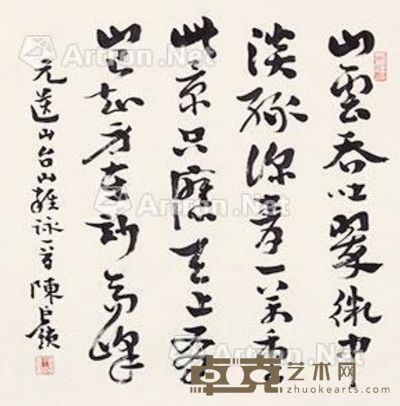 山雲吞吐翠微中
淡綠深青一萬重
此景只應天上有
豈知身在妙高峰
元遺山台山雜詠一首 陳巨鎖
Artron.Net
Artron.Net
Artron.Net
Artron.Net
卓克艺术网
www.zhuokearts.com